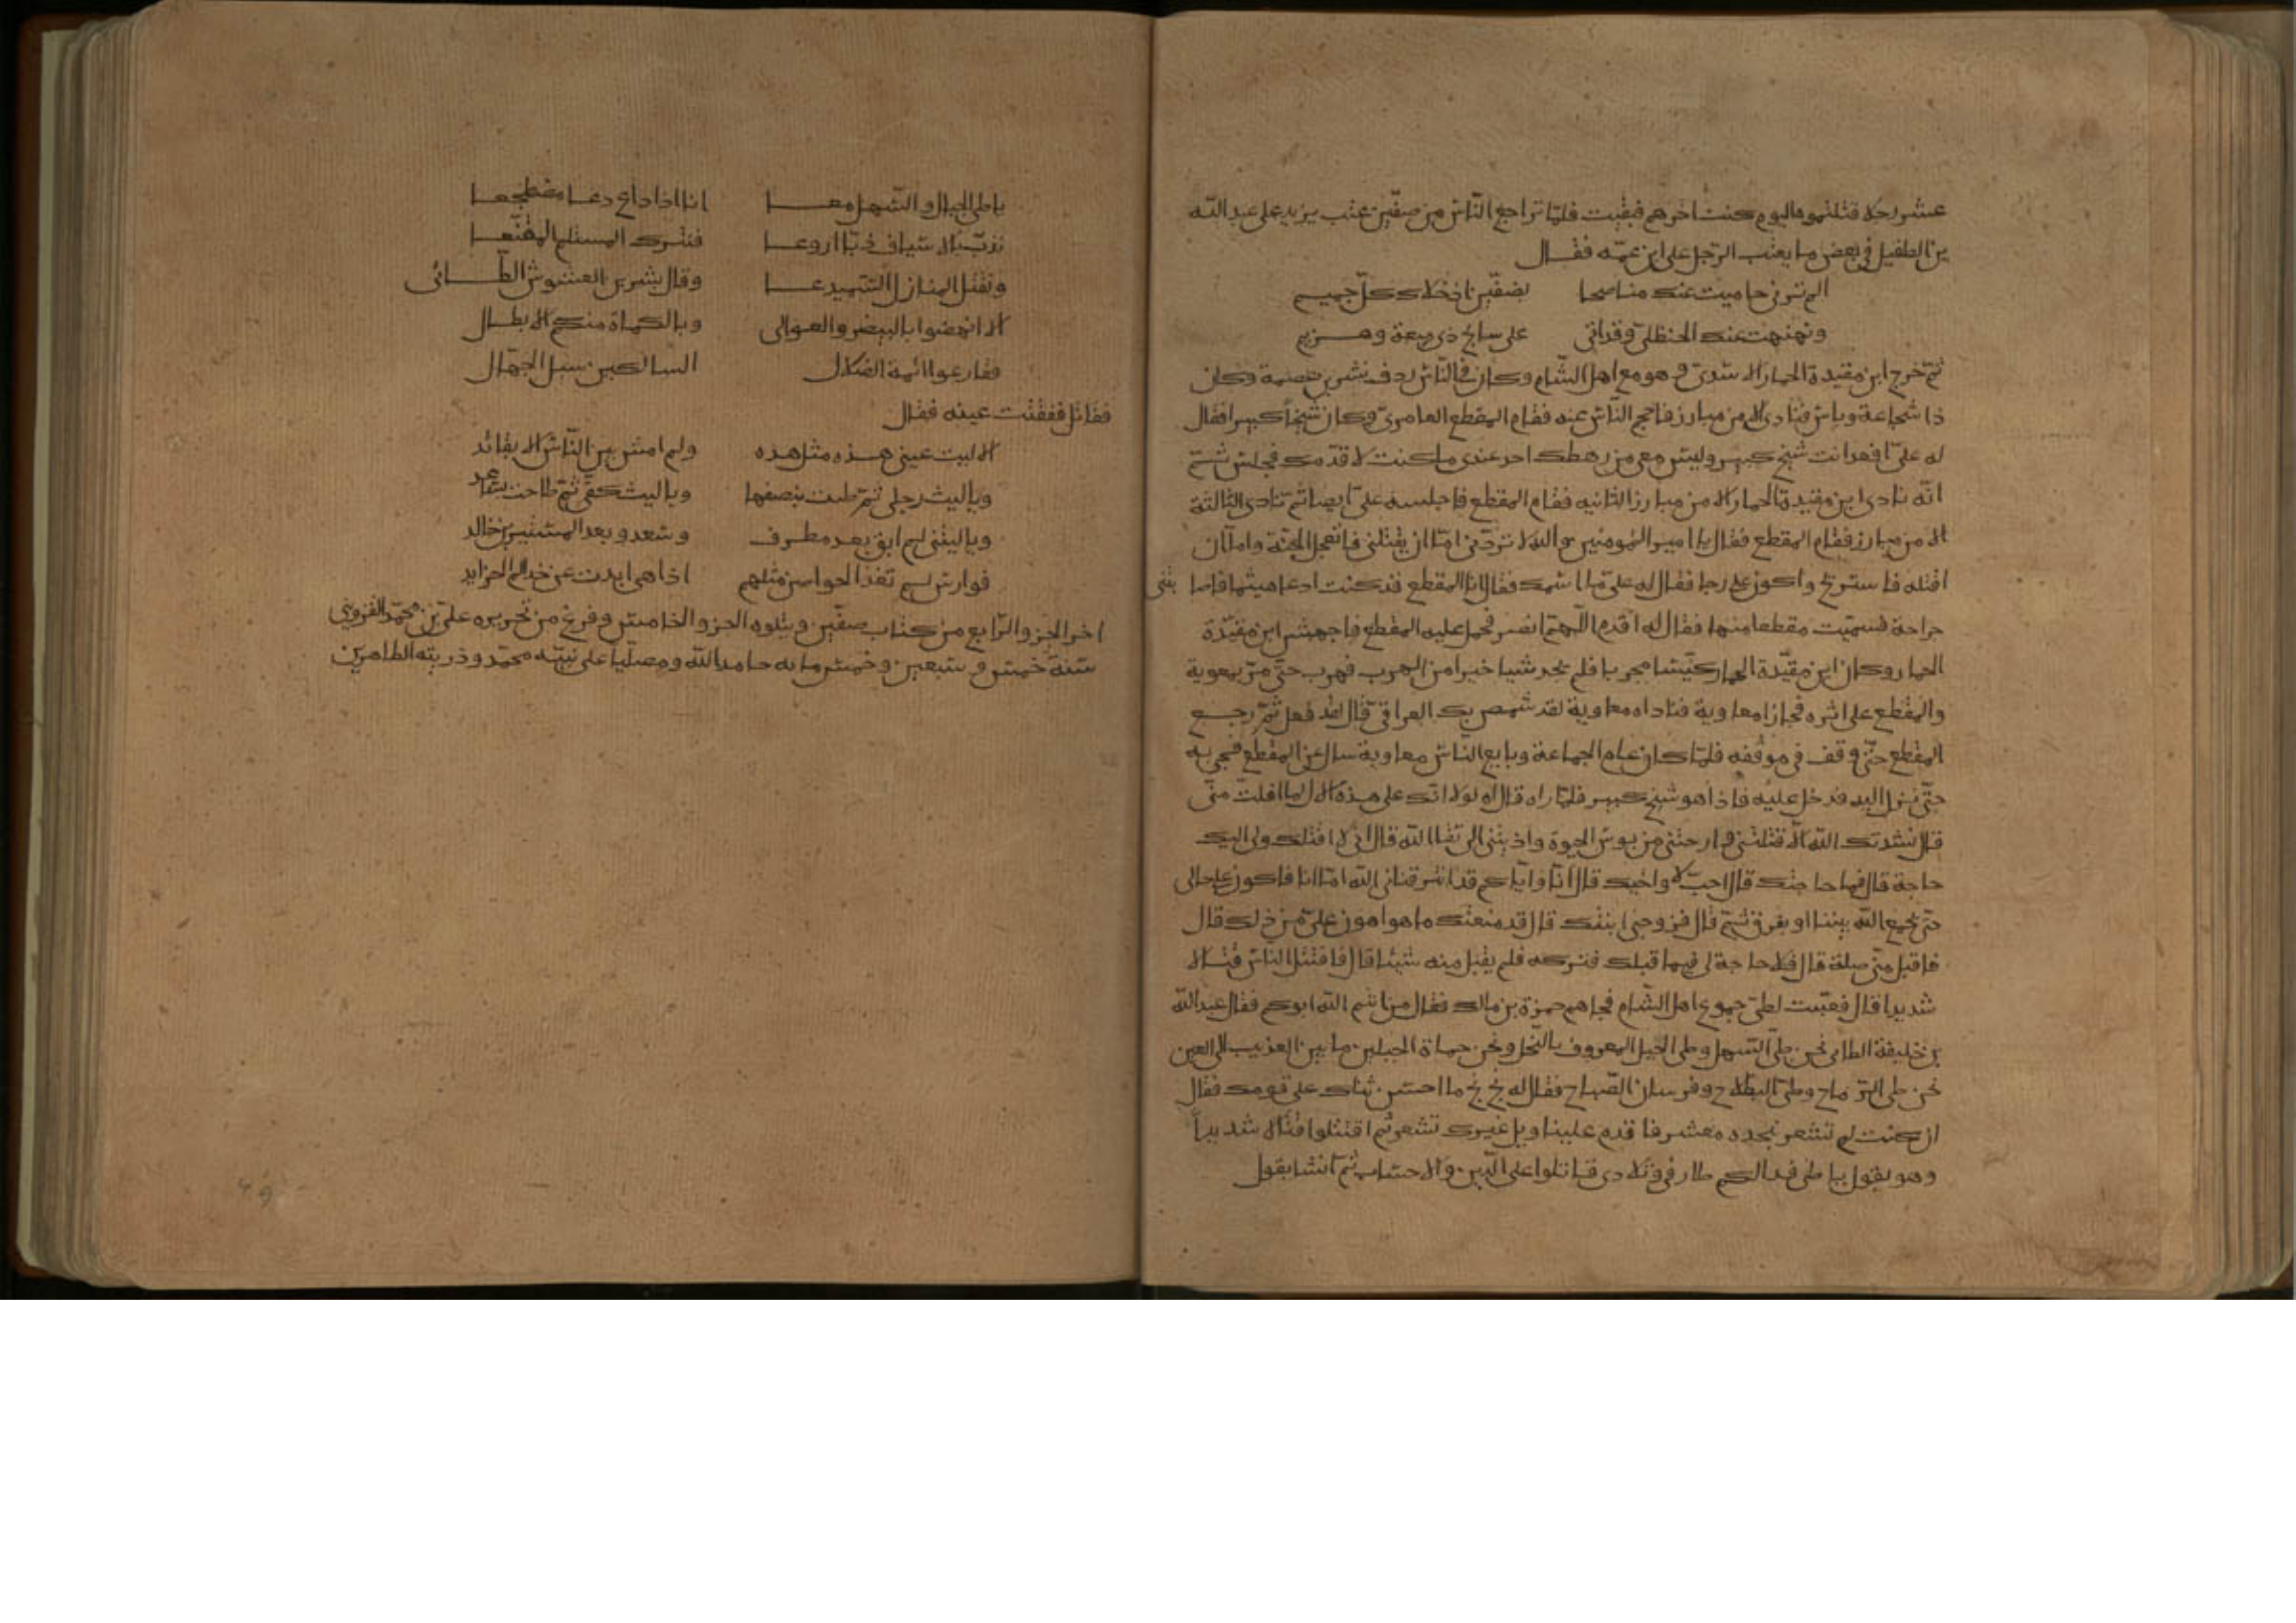 عشر رجلا قتلتموها اليوم كنت اخرهم فبقيت فلمّا تراجع النّاس من صفّين عتب يزيد على عبد الله
بن الطفيل في بعض ما يعتب الرّجل على ابن عمّه فقـــال
الم ترني حاميت عنك مناصحا بصفّين اذ خلاك كلّ حميـــم
ونهنهت عنك الحنظليّ وقد اتى على سابح ذي ميعة وهـــزيم
ثمّ خرج ابن مقيدة الحمار الاسديّ وهو مع اهل الشّام وكان في النّاس ردف بشر بن عصمة وكان
ذا شجاعة وباس فنادى الا من مبارز فاحجم النّاس عنه فقام المقطع العامريّ وكان شيخاً كبيرا فقال
له علىّ اقعد انت شيخ كبير وليس معى من رهطك احد غيرى ما كنت لاقدمك فجلس ثـــمّ
انّه نادى ابن مقيدة الحمار الا من مبارز الثانيه فقام المقطع فاجلسه علىّ ايضا ثم نادى الثالثة
الا من مبارز فقام المقطع فقال يا امير المومنين والله لا تردّنى امّا ان يقتلنى فاتعجل الجنّة واما ان
اقتله فاستريح فقال له علىّ ما اسمك فقال انا المقطع قد كنت ادعا هيثما فاصابتنى
جراحة فسمّيت مقطعا منها فقال له اقدم اللّهمّ انصر فحمل عليه المقطع فاجهش ابن مقيّدة
الحمار وكان ابن مقيّدة الحمار كيّسا مجربا فلم يجد شيا خيرا من الهرب فهرب حتّى مرّ بمعوية
والمقطع على اثره فجازا معاوية فناداه معاوية لقد شمص بك العراقىّ قال لقد فعل ثمّ رجـــع
المقطع حتّى وقف فى موقفه فلمّا كان عام الجماعة وبايع النّاس معاوية سال عن المقطع
حتّى نزل اليه فدخل عليه فاذا هو شيخ كبير فلمّا راه قال اه لولا انّك على هذه الحال لما افلتّ منّى
قال نشدتك الله الّا قتلتنى وارحتنى من بوس الحيوة وادنيتنى الى لقا الله قال انى لا اقتلك ولى اليك
حاجة قال فما حاجتك قال احبّ ان اواخيك قال انّا وايّاكم قد افترقنا فى الله امّا انا فاكون على حالى
حتّى يجمع الله بيننا او يفرق ثـــمّ قال فزوجنى ابنتك قال قد منعتك ما هو اهون علىّ من ذلك قال
فاقبل منّى صلة قال فلا حاجة لى فيما قبلك فتركه فلم يقبل منه شيئا قال فاقتتل الناس قتـــالا
شديدا قال فعبّت لطىّ جموع اهل الشّام فجاهم حمزة بن مالك فقال من انتم الله ابوكم فقال عبد الله
بن خليفة الطائى نحن طىّ السّهل وطىّ الجبل المعروف بالنّخل ونحن حماة الجبلين ما بين العذيب الى العين
نحن طى الرّماح وطىّ البطاح وفرسان الصّباح فقال له بخ بخ ما احسن ثناك على قومك فقال
ان كنت لم تشعر بنجده معشر فاقدم علينا ويل غيرك تشعر ثم اقتتلوا قتالا شديداً
وهو يقول يا طى فدا لكم طارفى وتلادى قاتلوا على الدّين والاحساب ثمّ انشا يقول
يا طى الجبال والسّهل معـــا انا اذا داع دعـــا مضطجعـــا
ندبّ بالاسياف دبّا اروعـــا فنترك المستلم المقنّعـــا
ونقتل المنازل السّميدعـــا وقال بشر بن العشوش الطّـــائى
الا انهضوا بالبيض والعوالى وبالكماة منكم الابطـــال
فقارعوا ائمة الضلال السالكين سبل الجهّال
فقاتل ففقئت عينه فقال
الا ليت عينى هـــذه مثل هذه ولم امش بين النّاس الا بقائد
ويا ليت رجلى ثمّ طنت بنصفها ويا ليت كفّى ثمّ طاحت بساعد
ويا ليتنى لم ابق بعد مطرف وسعد وبعد المستنير بن خالد
فوارس لم تغذ الحواضن مثلهم اذا هى ابدت عن خدام الخرايد
اخر الجزو الرّابع من كتاب صفّين ويتلوه الجزو الخامس وفرغ من تحريره علىّ بن محمّد القزوينى
سنة خمس و سبعين وخمس مايه حامدا لله ومصلّيا على نبيّه محمّد وذريته الطاهرين